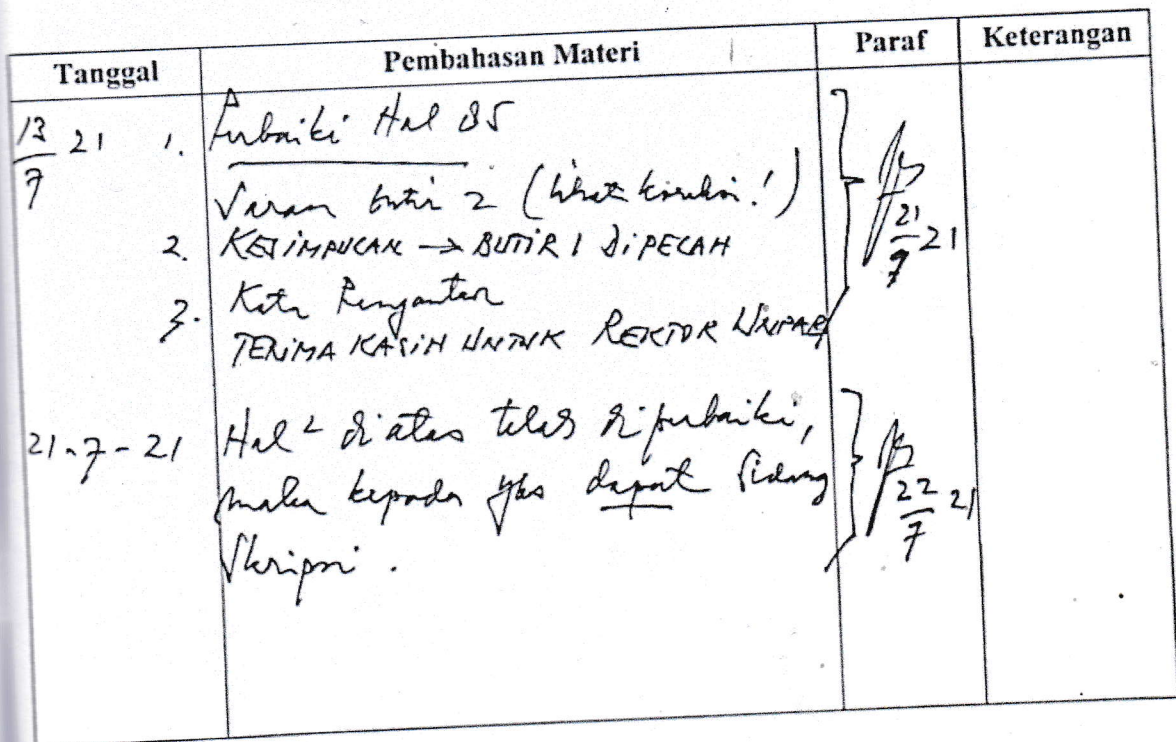 Tanggal Pembahasan Materi Paraf Keterangan
13/7 21 1. Perbaiki Hal 85
Saran butir 2 (lihat koreksi!)
2. KESIMPULAN → BUTIR 1 DIPECAH
3. Kata Pengantar
TERIMA KASIH UNTUK REKTOR UNPAR
21/7 21
21-7-21 Hal² diatas telah diperbaiki,
maka kepada ybs dapat Sidang
Skripsi.
22/7 21